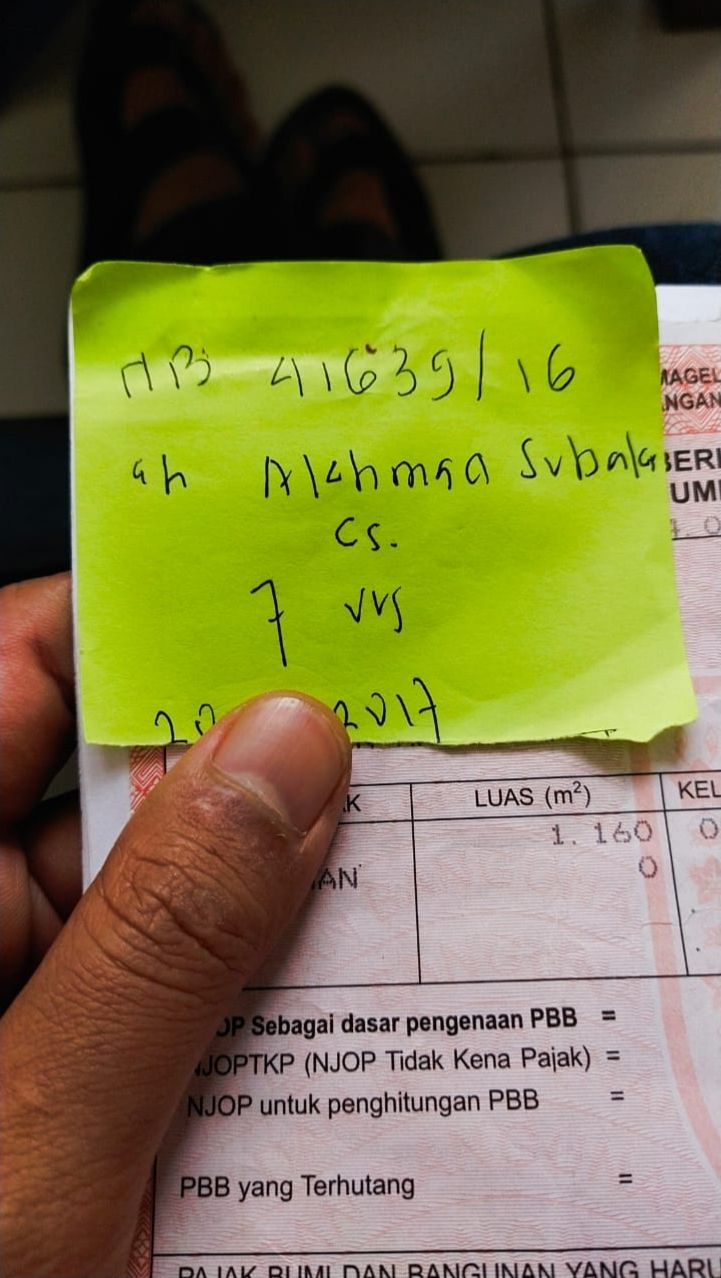 41639/16
an
cs.
7
2017
MAGEL
NGAN
BERI
UMI
LUAS (m²)
KEL
1.160 0
0
Sebagai dasar pengenaan PBB =
NJOPTKP (NJOP Tidak Kena Pajak) =
NJOP untuk penghitungan PBB =
PBB yang Terhutang =
PAJAK BUMI DAN BANGUNAN YANG HARU